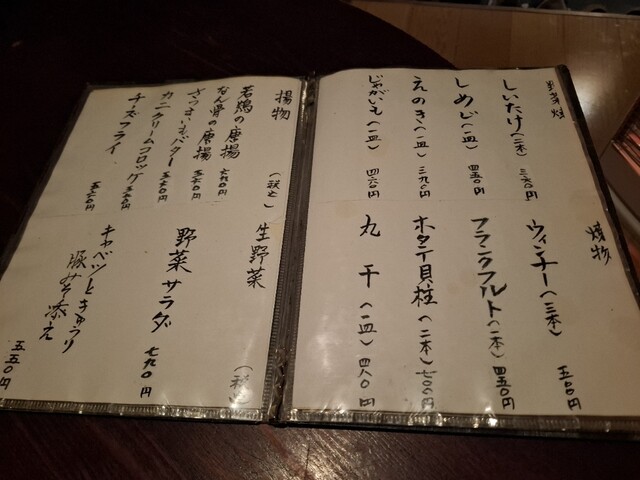 野菜焼
しいたけ(二本) 三六〇円
しめじ(一皿) 四五〇円
えのき(一皿) 三九〇円
じゃがいも(一皿) 四六〇円
焼物
ウィンナー(三本)
フランクフルト(二本) 四五〇円
ホタテ貝柱(二本) 七〇〇円
丸干(一皿) 四八〇円
揚物 (税込)
若鶏の唐揚 六九〇円
なん骨の唐揚
さつまいもバター
カニクリームコロッケ
チーズフライ
生野菜 (税込)
野菜サラダ 七九〇円
キャベツときゅうり
添え 五五〇円